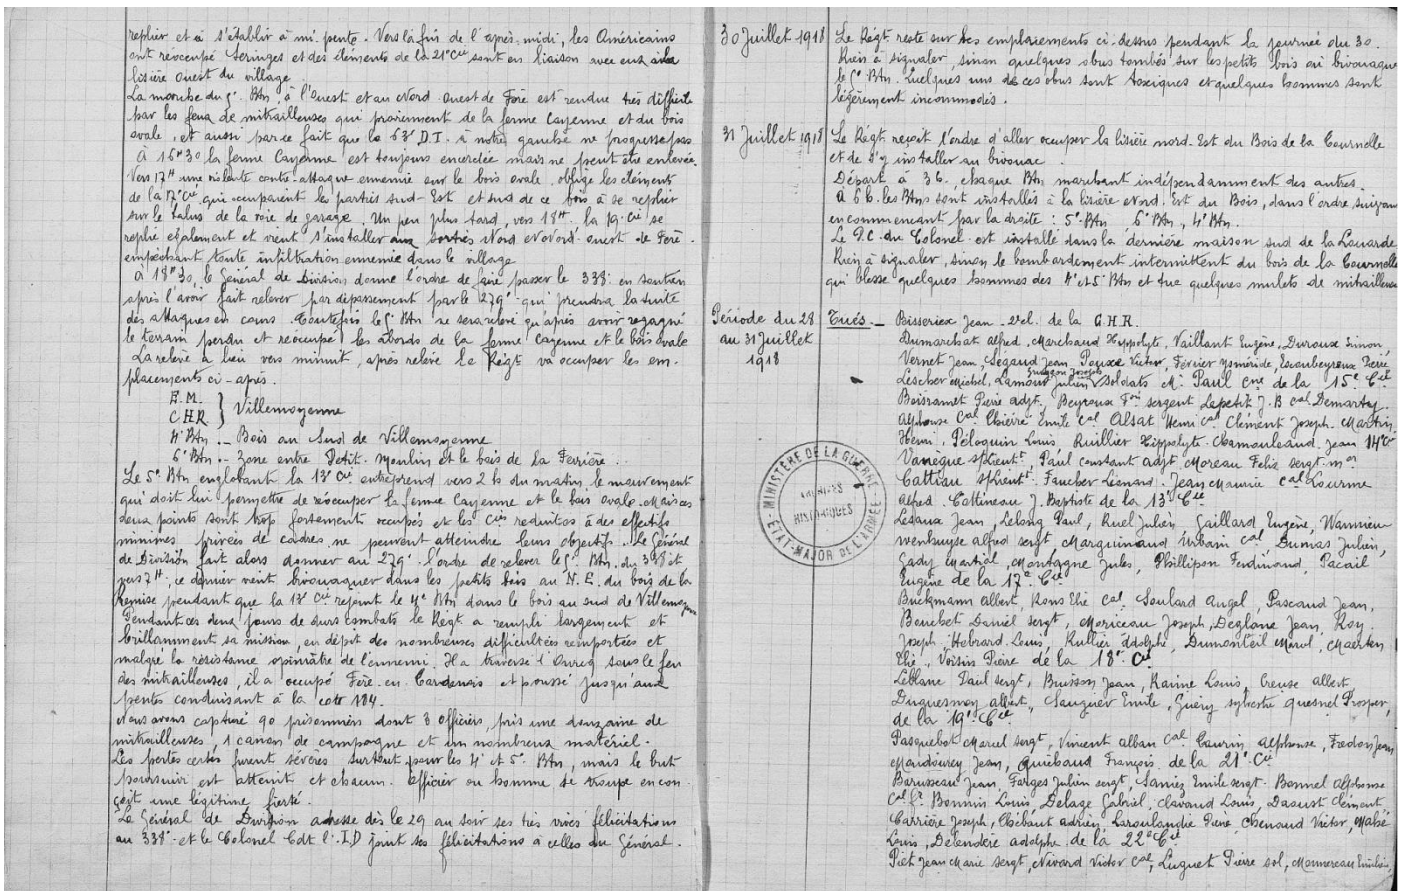 replier et à s'établir à mi-pente. Vers la fin de l'après-midi, les Américains
ont réoccupé Seringes et des éléments de la 21e Cie sont en liaison avec eux à la
lisière ouest du village.
La marche du 5e Btn, à l'Ouest et au Nord Ouest de Fère est rendue très difficile
par les feux de mitrailleuses qui proviennent de la ferme Cayenne et du bois
ovale, et aussi par ce fait que la 63e D.I. à notre gauche ne progresse pas
À 16H30 la ferme Cayenne est toujours encerclée mais ne peut être enlevée.
Vers 17H une violente contre-attaque ennemie sur le bois ovale, oblige les éléments
de la 17e Cie qui occupaient les parties sud-Est et sud de ce bois à se replier
sur le talus de la voie de garage. Un peu plus tard, vers 18H. la 19e Cie se
replie également et vient s'installer aux sorties Nord et Nord'ouest de Fère.
empêchant toute infiltration ennemie dans le village
à 18H30, le Général de Division donne l'ordre de faire passer le 338e en soutien
après l'avoir fait relever par dépassement par le 279e qui prendra la suite
des attaques en cours. Toutefois le 5e Btn ne sera relevé qu'après avoir regagné
le terrain perdu et réoccupé les abords de la ferme Cayenne et le bois ovale
La relève a lieu vers minuit, après relève le Régt va occuper les em-
placements ci-après.
E.M.
CHR } Villemoyenne
4e Btn.- Bois au Sud de Villemoyenne
6e Btn.- Zone entre Petit-Moulin et le bois de la Ferrière.
Le 5e Btn englobant la 13e Cie entreprend vers 2 h du matin, le mouvement
qui doit lui permettre de réoccuper la ferme Cayenne et le bois ovale. Mais ces
deux points sont trop fortement occupés et les Cies réduites à des effectifs
minimes privées de cadres, ne peuvent atteindre leurs objectifs. Le Général
de Division fait alors donner au 279e l'ordre de relever le 5e Btn du 338 et
vers 7H, ce dernier vient bivouaquer dans les petits bois au N.E. du bois de la
Remise pendant que la 13e Cie rejoint le 4e Btn dans le bois au sud de Villemoyenne
Pendant ces deux jours de durs combats le Régt a rempli largement et
brillamment sa mission, en dépit des nombreuses difficultés remportées et
malgré la résistance opiniâtre de l'ennemi. Il a traversé l'Ourcq sous le feu
des mitrailleuses, il a occupé Fère-en-Tardenois et poussé jusqu'aux
pentes conduisant à la cote 184.
Nous avons capturé 90 prisonniers dont 3 officiers, pris une douzaine de
mitrailleuses, 1 canon de campagne et un nombreux matériel.
Les pertes certes furent sévères surtout pour les 4e et 5e Btn, mais le but
poursuivi est atteint et chacun officier ou homme de troupe en con-
çoit une légitime fierté.
Le Général de Division adresse dès le 29 au soir ses très vives félicitations
au 338e et le Colonel Cdt l'I.D joint ses félicitations à celles du Général.
30 Juillet 1918 Le Régt reste sur ses emplacements ci-dessus pendant la journée du 30.
Rien à signaler, sinon quelques obus tombés sur les petits bois où bivouaque
le 5e Btn. Quelques uns de ces obus sont toxiques et quelques hommes sont
légèrement incommodés.
31 Juillet 1918 Le Régt reçoit l'ordre d'aller occuper la lisière nord-Est du Bois de la Tournelle
et de s'y installer au bivouac.
Départ à 3h, chaque Btn marchant indépendamment des autres.
à 6h. les Btns sont installés à la lisière Nord-Est du Bois, dans l'ordre suivant
en commençant par la droite : 5e Btn 6e Btn, 4e Btn.
Le P.C. du Colonel est installé dans la dernière maison sud de la
Rien à signaler, sinon le bombardement intermittent du bois de la Tournelle
qui blesse quelques hommes des 4e et 5 Btn et tue quelques mulets de mitrailleuses
Période du 28
au 31 Juillet
1918
Tués.- Bisserieix Jean-2e cl. de la C.H.R.
Dumarchat alfred, Marchaud Hippolyte, Vaillant Eugène, Duroux Simon,
Vernet Jean, Ségaud Jean, Peyrix Victor, Février Ysméride, Escoubeyroux Pierre
Lescher Michel, Lamour Julien soldats Mr Paul cne de la 15e Cie
Boissramet Pierre adjt, Beyroux Fois sergent Lepetit J. B cal Demartay.
Alphonse Cal Emile Cal Alsat Henri cal Clément Joseph. Martin
Henri, Péloquin Louis, Rullier Hippolyte. Chamouleaud Jean 14e Cie
Vanègue s/lieutt. Paul constant adjt, Moreau Felix sergt-mor
Cattiau s/lieutt. Faucher Léonard. Jean Maurice cal Lourme
alfred. Cottineau J. Baptiste de la 13e Cie
Lesaux Jean, Lelong Paul, Ruel Julien, Gaillard Eugène, Warmieu
wenhuyse alfred sergt Marquinaud Urbain cal Dumas Julien,
Gady Martial, Montagne Jules, Phillipon Ferdinand, Pacail
Eugène de la 17e Cie
Bruckmann Albert, Rons Elie Cal Soulard Angel, Pascaud Jean,
Bouchet Daniel sergt, Moriceau Joseph, Deglane Jean, Roy.
Joseph, Hebrard Louis, Rullier adolphe, Dumonteil Marcel, Maerten
Elie, Voisin Pierre de la 18e Cie
Leblanc Paul sergt, Buisson Jean, Raine Louis, Creuse albert
Duquesnoy albert, Sauguer Emile, Guéry sylvestre quesnel Prosper,
de la 19e Cie
Pasquebot Marcel sergt, Vincent alban cal. Taurin alphonse, Fredon Jean
Maudourey Jean, Quichaud François de la 21e Cie
Barusseau Jean Farges Julien sergt, Saniez Emile sergt. Bonnel Alphonse
Cal fr Bonnin Louis, Delage Gabriel, Clavaud Louis, Daoust Clément,
Carrière Joseph, Chébaut adrien, Laroulandie Pierre, Chenaud Victor, Mahé
Louis, Delendère adolphe de la 22e Cie
Piet Jean Marie sergt, Nivard Victor cal, Luguet Pierre sol, Monnereau Emilien
MINISTÈRE DE LA GUERRE
ARCHIVES
HISTORIQUES
ÉTAT-MAJOR DE L'ARMÉE